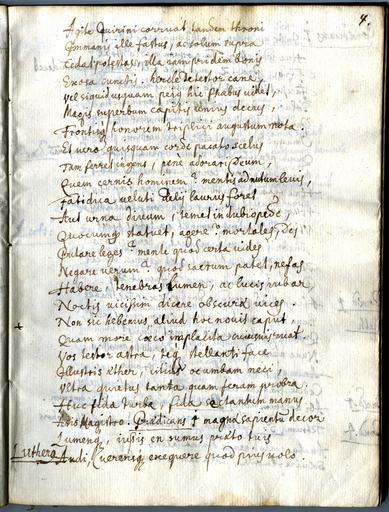 4.
Agite Quirini corruat tandem throni
Commanis ille fastus, ac solum supra
Cedat potestas, illa jam pridem bonis
Exosa cunctis. hercle detestor canem,
Vel siquid usquam peius hic Phæbus videt,
Magis superbum capitis unius decus,
Frontisq honorem triplici augustum nota.
Et vero quisquam corde pacato scelus
Tam ferret ingens, pene adorari Deum,
Quem cernis hominem? mentis ad nutum levis,
Fatidica veluti Delii laurus foret
Aut urna divum, semel in dubio pede,
Quocunq statuet, agere? mortales, Deos
Putare leges? mente quod certa vides
Negare verum? quod sactum patet, nefas
Habere, tenebras lumen, ac lucis iubar
Noctis vicissim dicere obscura vices.
Non sic hebenus aliud hoc novit caput,
Quam more cæco implacita cuiusvis ruat.
Vos testor astra, teq stellanti face
Illustris æther, citius occumbam neci,
Ultra quietus tanta quam feram probra.
Huc fida turba, fida sectantum manus
Adis Magistro. Prædicans † magna sapientum decor
Lumenq, iussis en sumus prato tuis
Luthero Audi, verenq exequere quod prius volo.